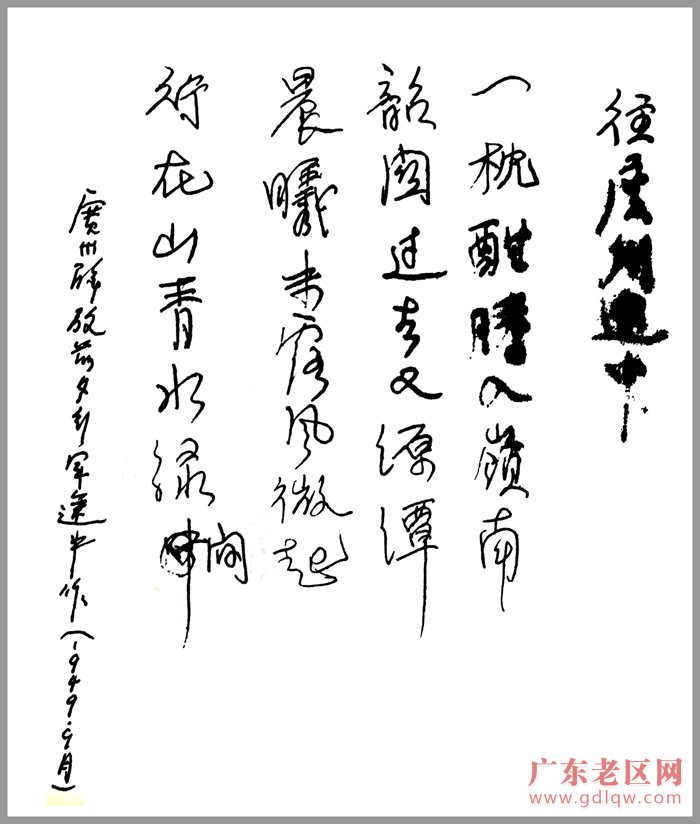 径广州途中
一枕酣睡入嶺南
韶関过去又源潭
晨曦未露风微起
行在山青水绿间
廣州解放前夕行军途中作(1949.9月)
广东老区网
www.gdlqw.com